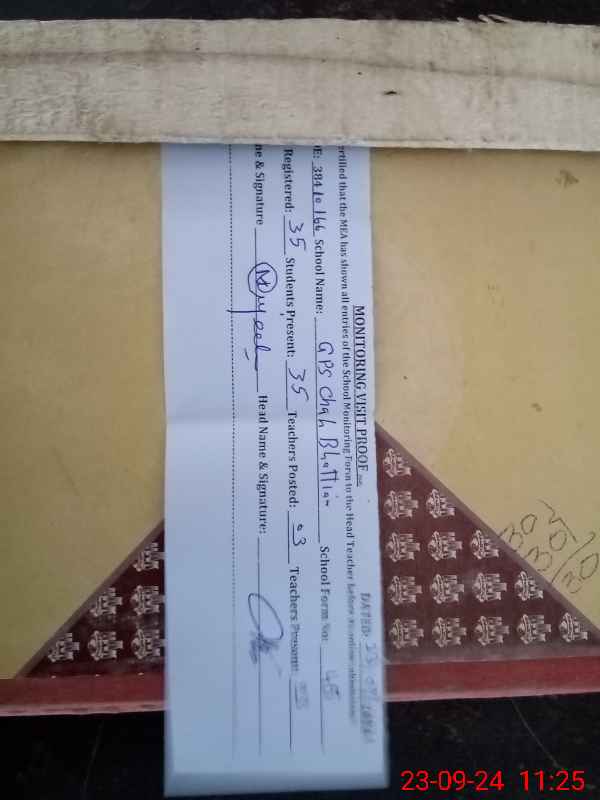 MONITORING VISIT PROOF
DATED: 23
ertified that the MEA has shown all entries of the School Monitoring Form to the Head Teacher before
E: 38410166 School Name: GPS Chah Bhattian School Form No: 45
Registered: 35 Students Present: 35 Teachers Posted: 03 Teachers Present: 03
ne & Signature Head Name & Signature:
303
30/30
23-09-24 11:25